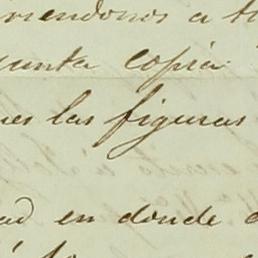 riendonos a
junta copia
las figuras
ad en donde